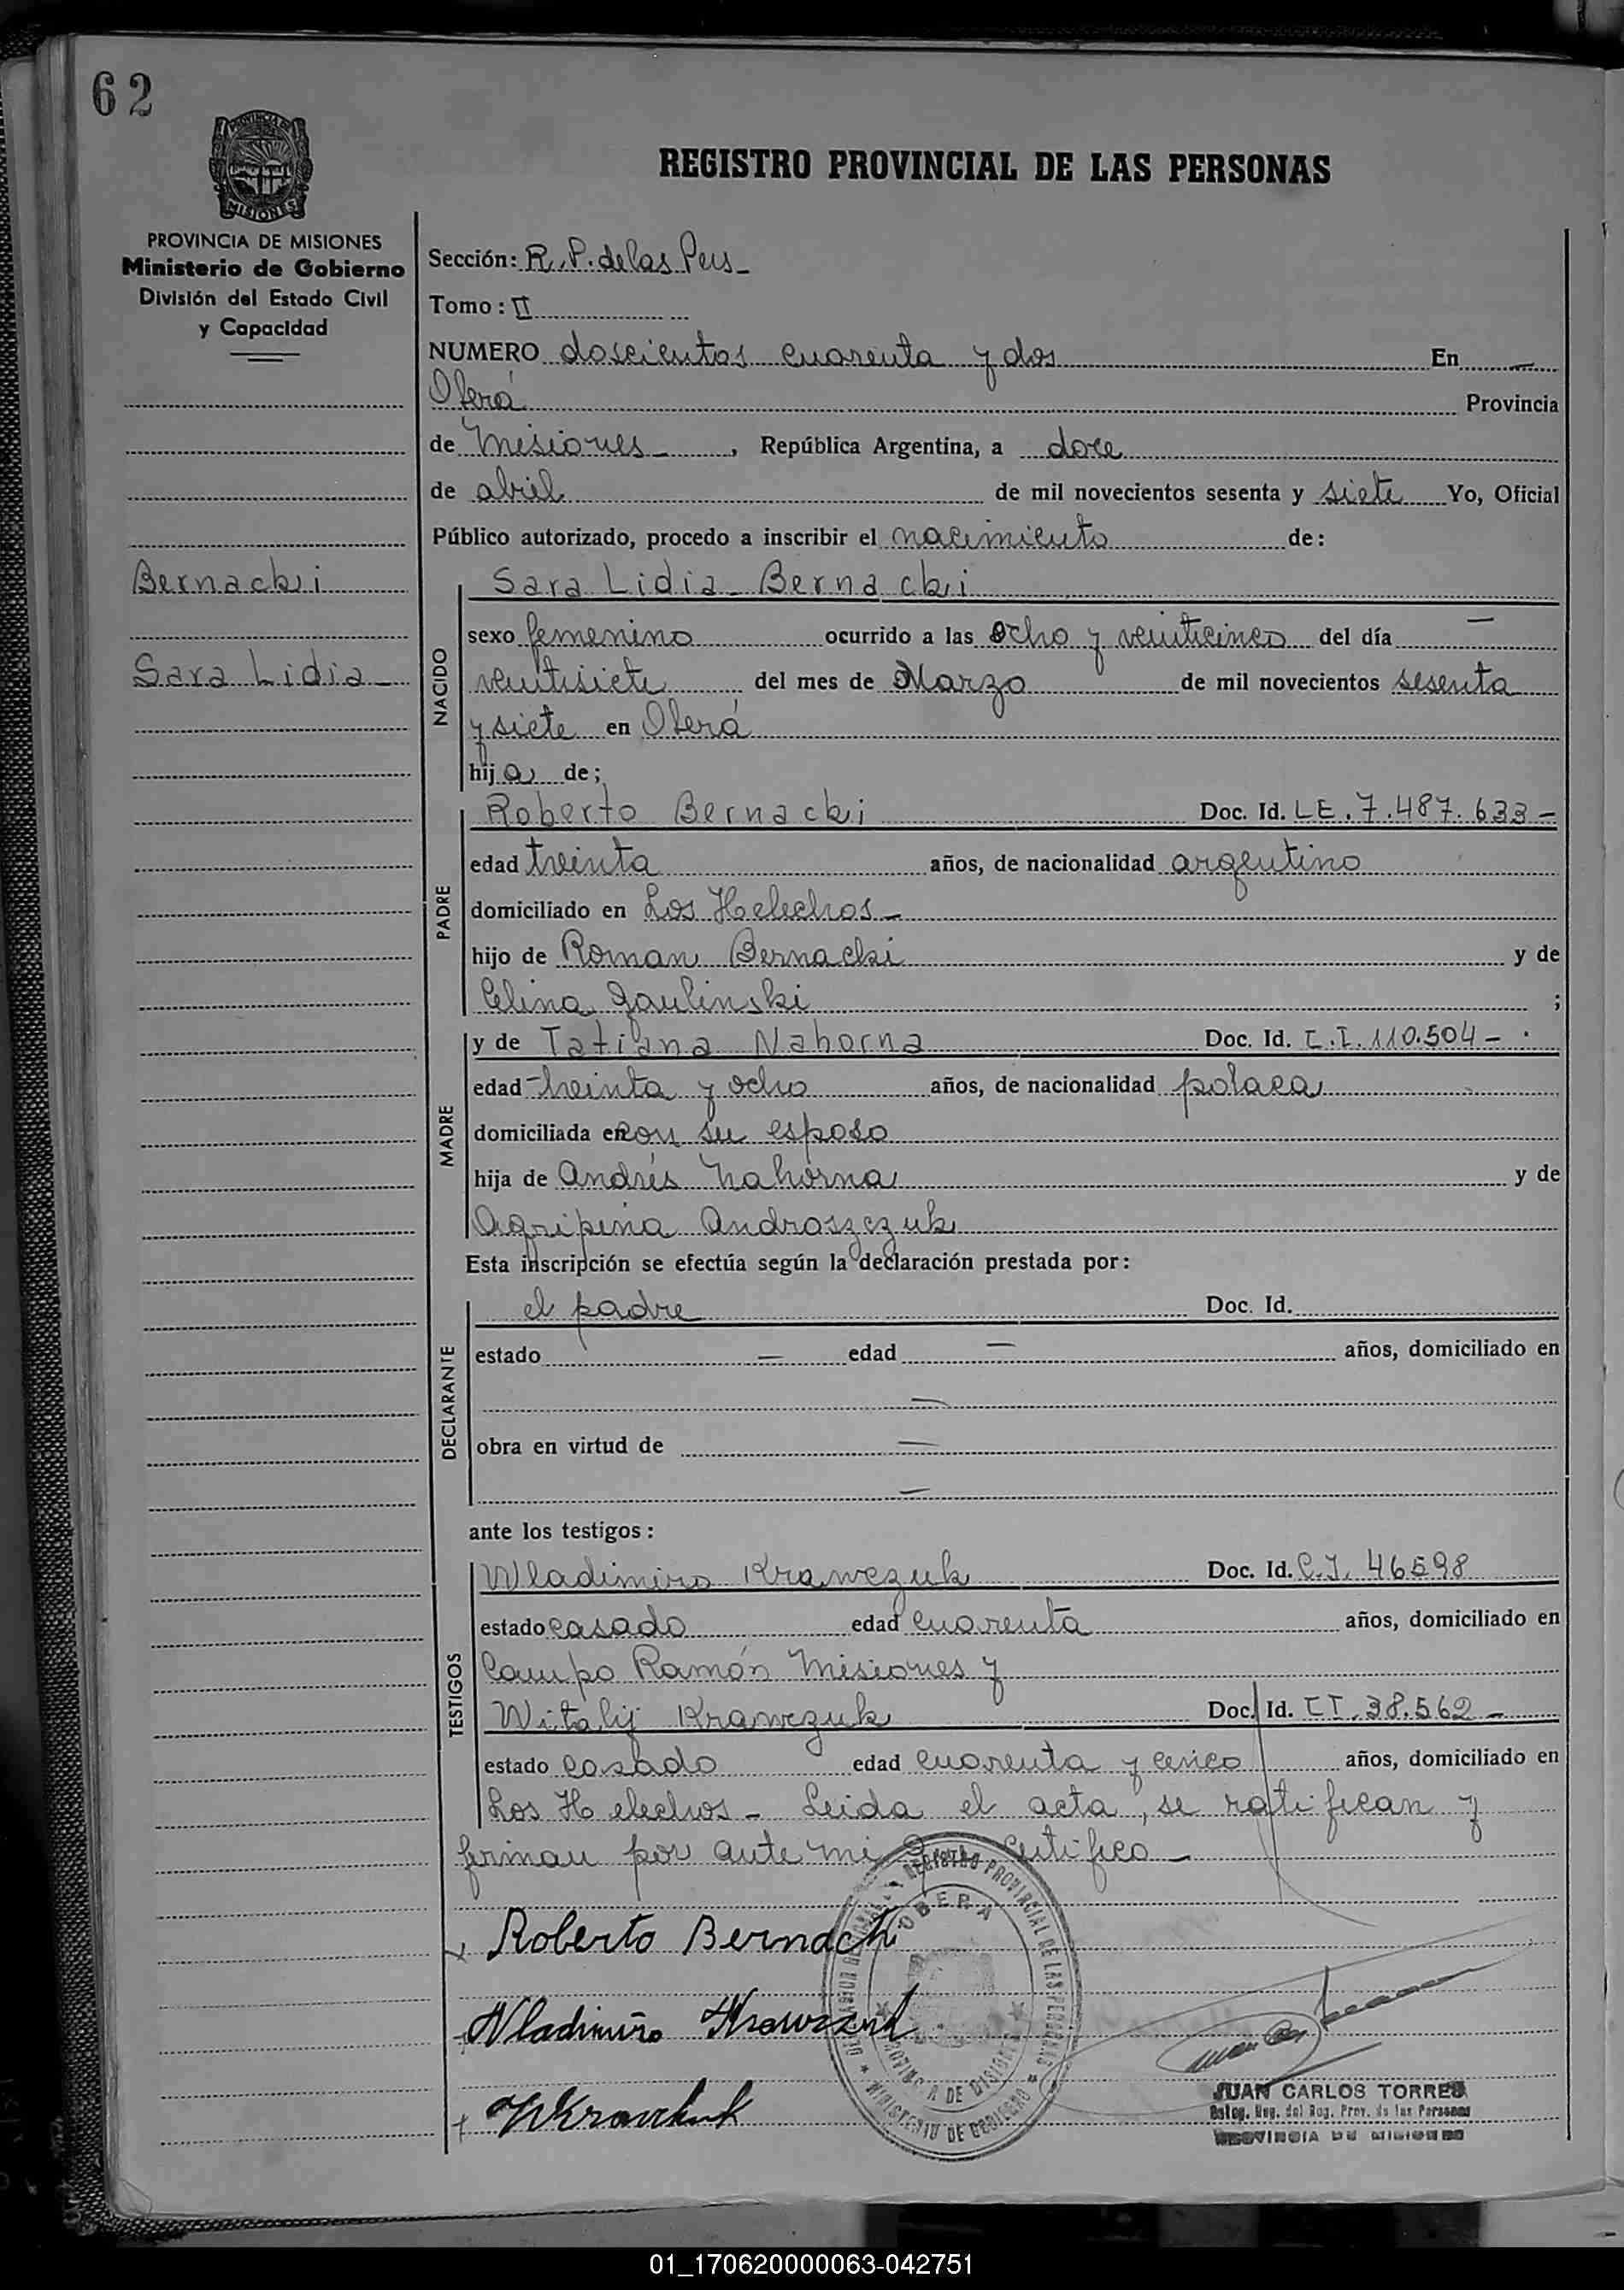 62
PROVINCIA DE
MISIONES
REGISTRO PROVINCIAL DE LAS PERSONAS
PROVINCIA DE MISIONES
Ministerio de Gobierno
División del Estado Civil
y Capacidad
Bernacki
Sara Lidia -
Sección: R. P. de las Pers -
Tomo: II
NUMERO doscientos cuarenta y dos En —
Oberá Provincia
de Misiones -, República Argentina, a doce
de abril de mil novecientos sesenta y siete Yo, Oficial
Público autorizado, procedo a inscribir el nacimiento de:
NACIDO
Sara Lidia Bernacki
sexo femenino ocurrido a las ocho y veinticinco del día —
veintisiete del mes de Marzo de mil novecientos sesenta
y siete en Oberá
hija de;
PADRE
Roberto Bernacki Doc. Id. L.E. 7.487.633 -
edad treinta años, de nacionalidad argentino
domiciliado en Los Helechos -
hijo de Roman Bernacki y de
Celina Gaulinski ;
MADRE
y de Tatiana Nahorna Doc. Id. C.I. 110.504 -
edad treinta y ocho años, de nacionalidad polaca
domiciliada en con su esposo
hija de Andrés Nahorna y de
Agripina Androszczuk
Esta inscripción se efectúa según la declaración prestada por:
DECLARANTE
el padre Doc. Id.
estado — edad — años, domiciliado en
—
obra en virtud de —
—
ante los testigos:
TESTIGOS
Wladimiro Krawczuk Doc. Id. C.I. 46598
estado casado edad cuarenta años, domiciliado en
Campo Ramón Misiones y
Witalij Krawczuk Doc. Id. C.I. 38.562 -
estado casado edad cuarenta y cinco años, domiciliado en
Los Helechos - Leida el acta, se ratifican y
firman por ante mi que certifico -
Roberto Bernacki
Wladimiro Krawczuk
WKravchuk
REGISTRO PROVINCIAL DE LAS PERSONAS
OBERA
PROVINCIA DE MISIONES
MINISTERIO DE GOBIERNO
JUAN CARLOS TORRES
Deleg. Reg. del Reg. Prov. de las Personas
PROVINCIA DE MISIONES
01_170620000063-042751